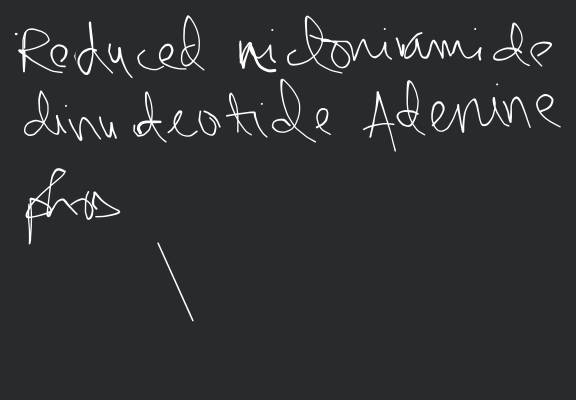 Reduced nictonivamide
dinudeotide Adenine
phos